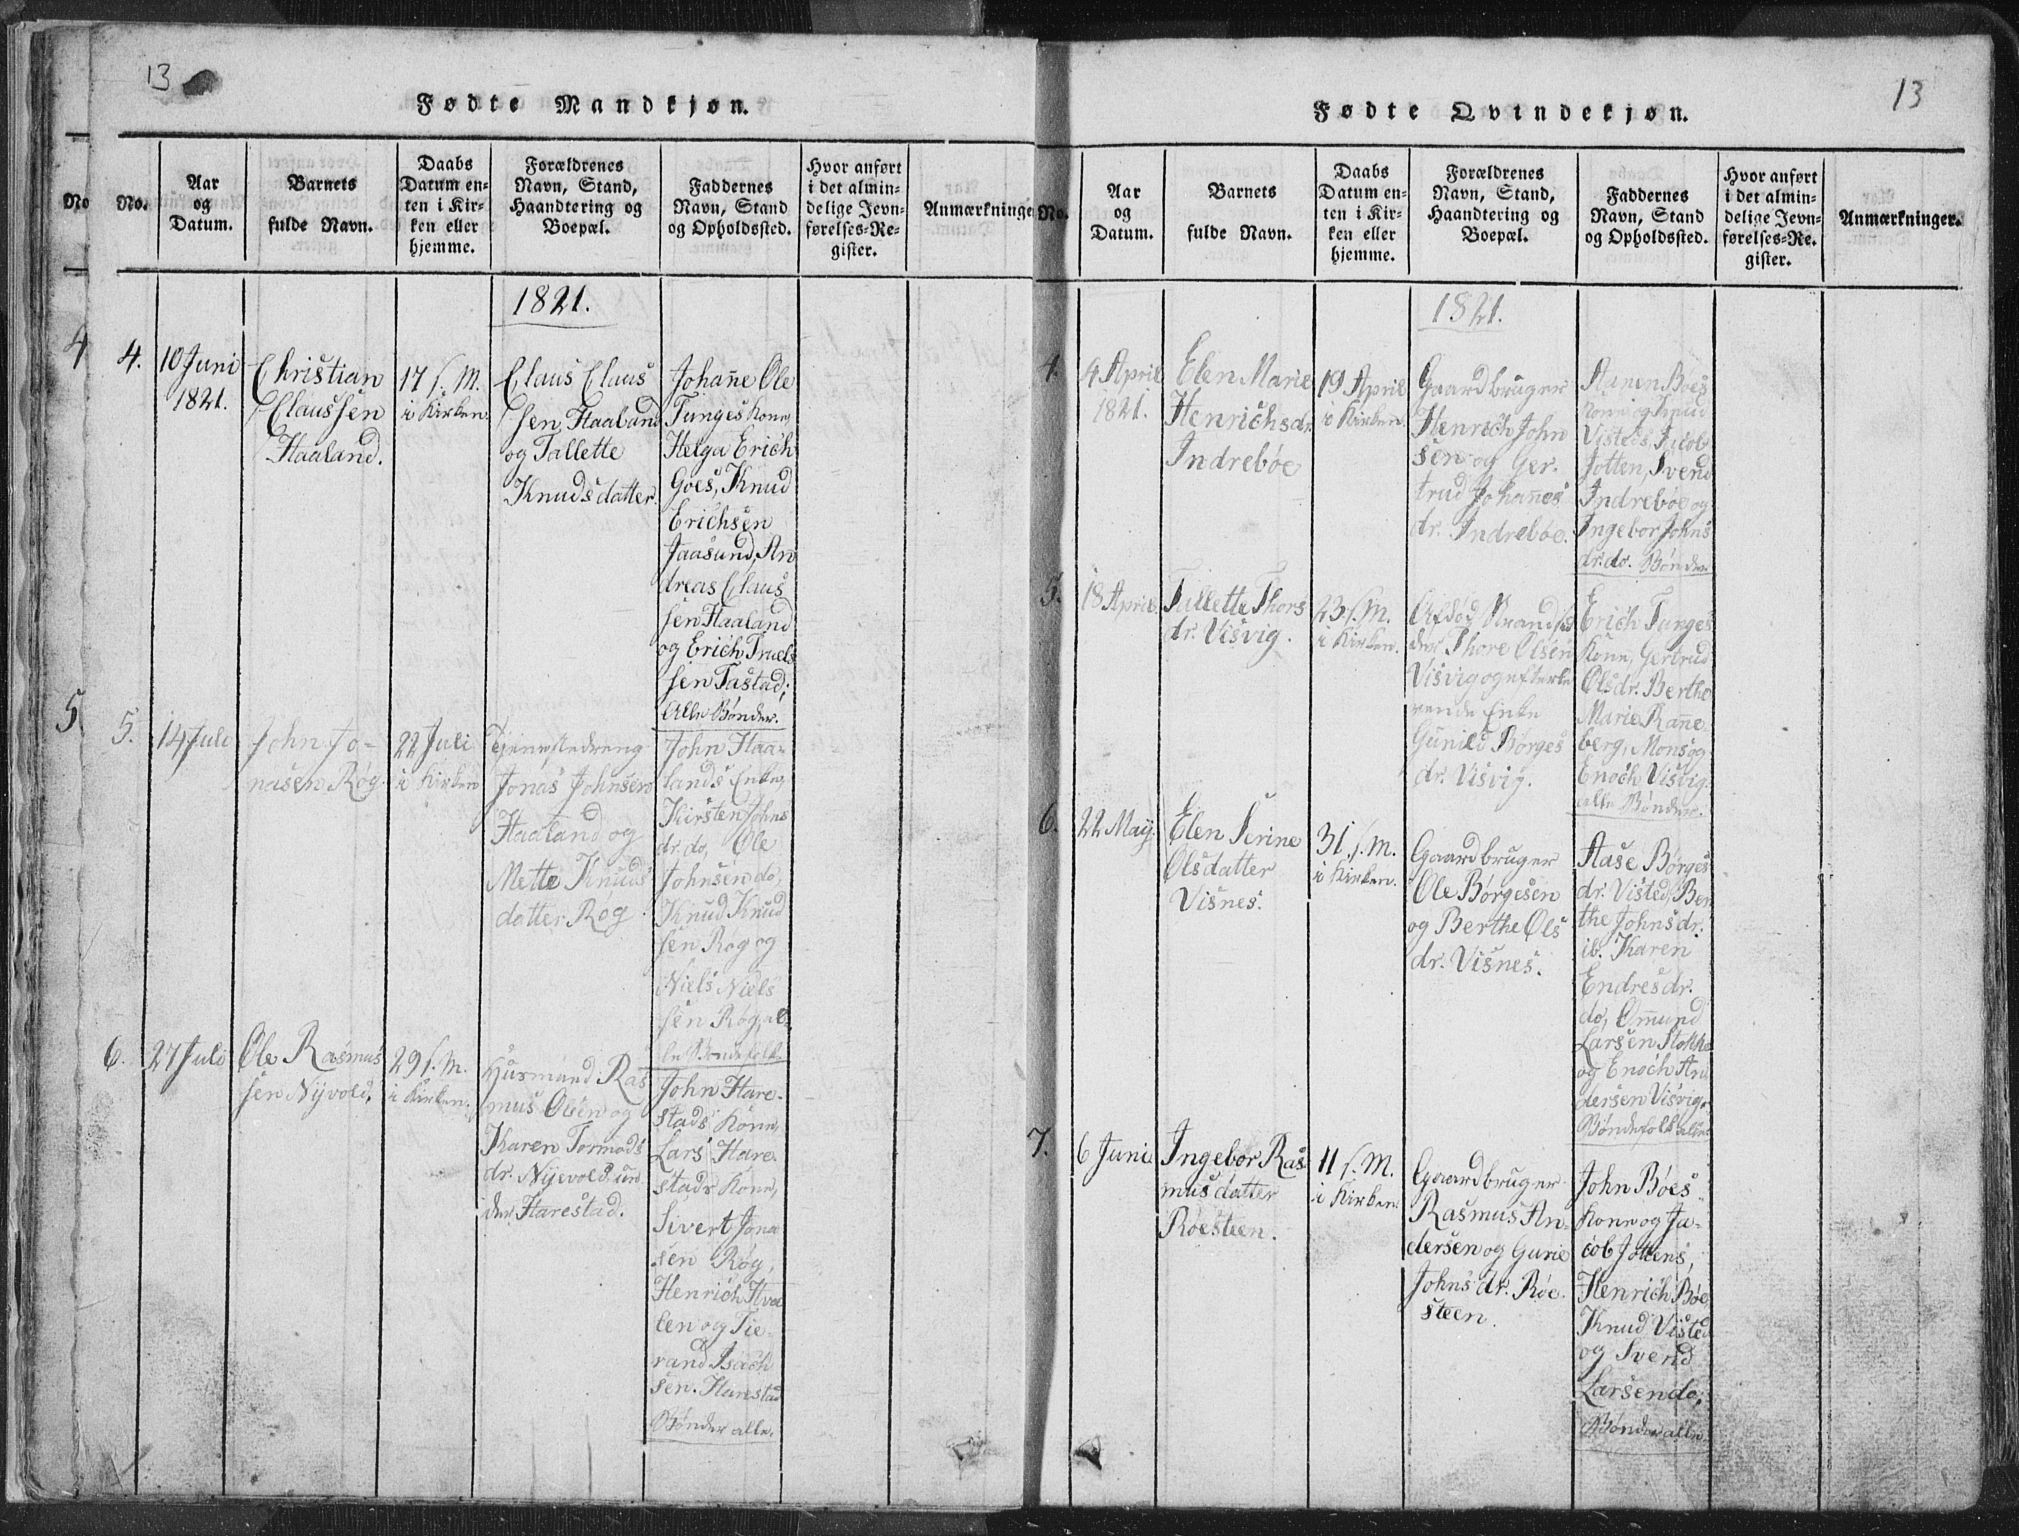 13
Fødte Mandkjøn.
No
No.
Aar
og
Datum.
Barnets
fulde Navn.
Daabs
Datum en-
ten i Kir-
ken eller
hjemme.
Forældrenes
Navn, Stand,
Haandtering og
Boepæl.
Faddernes
Navn, Stand
og Opholdssted.
Hvor anført
i det almin-
delige Jevn-
førelses-Re-
gister.
Anmærkninge
1821.
4
4.
10 Juni
1821.
Christian
Claussen
Haaland.
17 s. M.
i Kirken.
Claus Claus
sen Haaland
og Tallette
Knudsdatter.
Johañe Ole
Tunges Kone,
Helga Erich
Goes, Knud
Erichsen
Jaasund, An
dreas Claus
sen Haaland
og Erich Truels
sen Tastad;
Alle Bønder.
5
5.
14 Juli
John Jo-
nasen Røg
22 Juli
i Kirken
Tjenestedreng
Jonas Johnsen
Haaland og
Mette Knuds
datter Røg
John Haa-
lands Enke,
Kirsten Johns
dr. do, Ole
Johnsen do,
Knud Knud
sen Røg og
Niels Niels
sen Røg, al-
le Bondefolk.
6.
27 Juli
Ole Rasmus
sen Nyvold.
29 s. M.
i Kirken.
Husmand Ras
mus Olsen og
Karen Tormods
dr. Nyevold un
der Harestad.
John Hare-
stads Kone,
Lars Hare-
stads Kone,
Sivert Jona
sen Røg,
Henrich Hvæ
len og Tie-
rand Isach
sen Harestad
Bønder alle.
13
Fødte Qvindekjøn.
No.
Aar
og
Datum.
Barnets
fulde Navn.
Daabs
Datum en-
ten i Kir-
ken eller
hjemme.
Forældrenes
Navn, Stand,
Haandtering og
Boepæl.
Faddernes
Navn, Stand
og Opholdssted.
Hvor anført
i det almin-
delige Jevn-
førelses-Re-
gister.
Anmærkninger.
1821.
4.
4 April
1821.
Elen Marie
Henrichsdr.
Indrebøe
19 April
i Kirken.
Gaardbruger
Henrich John
sen og Ger-
trud Johañes
dr. Indrebøe.
Aanen Boes
Kone og Knud
Visteds, Jacob
Jotten, Svend
Indrebøe og
Ingebor Johns
dr. do. Bønder
5.
18 April.
Tallette Thors
dr. Visvig.
23 s. M.
i Kirken.
Afdød Strandsid
der Thore Olsen
Visvig og efterle
vende Enke
Gunild Børges
dr. Visvig.
Erich Tunges
Kone, Gertrud
Olsdr. Berthe
Marie Rañe
berg, Mons og
Enoch Visvig
alle Bønder.
6.
22 May
Elen Serine
Olsdatter
Visnes.
31 s. M.
i Kirken.
Gaardbruger
Ole Børgesen
og Berthe Ols
dr. Visnes.
Aase Børges
dr. Visted, Ber
the Johnsdr.
ib. Karen
Endresdr.
do, Om̃und
Larsen Stokke
og Enoch An
dersen Visvig.
Bøndefolk alle.
7.
6 Juni
Ingebor Ras
musdatter
Røesteen.
11 s. M.
i Kirken.
Gaardbruger
Rasmus An-
dersen og Gurie
Johns dr. Røe-
steen.
John Bøes
Kone og Ja-
cob Jottens,
Henrich Bøe,
Knud Visted
og Svend
Larsen do,
Bønder alle.